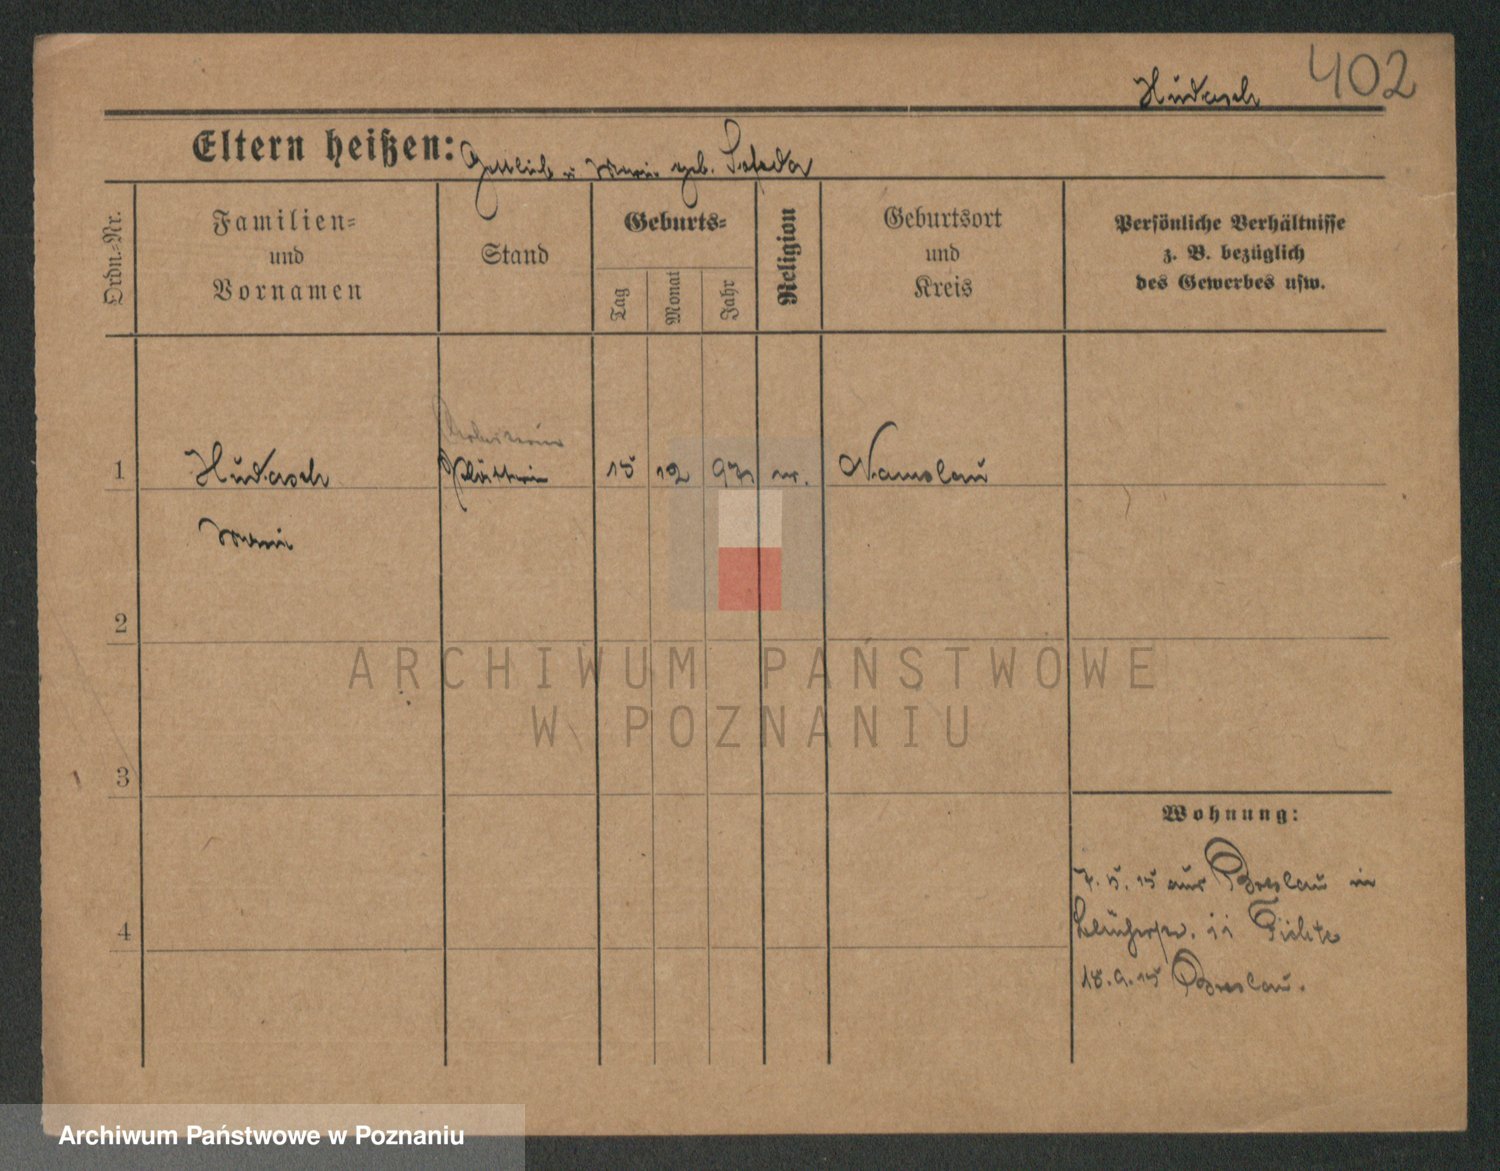 402
Hudasch
Eltern heißen: Gottlieb u Marie geb.
Ordn.=Nr.
Familien=
und
Vornamen
Stand
Geburts=
Tag
Monat
Jahr
Religion
Geburtsort
und
Kreis
Persönliche Verhältnisse
z. B. bezüglich
des Gewerbes usw.
Arbeiterin
1 Hudasch Plätterin 15 12 97 ev. Namslau
Marie
2
3
4
Wohnung:
7. 5. 15 aus Breslau in
11
18. 9. 15 Breslau.
ARCHIWUM PAŃSTWOWE
W POZNANIU
Archiwum Państwowe w Poznaniu